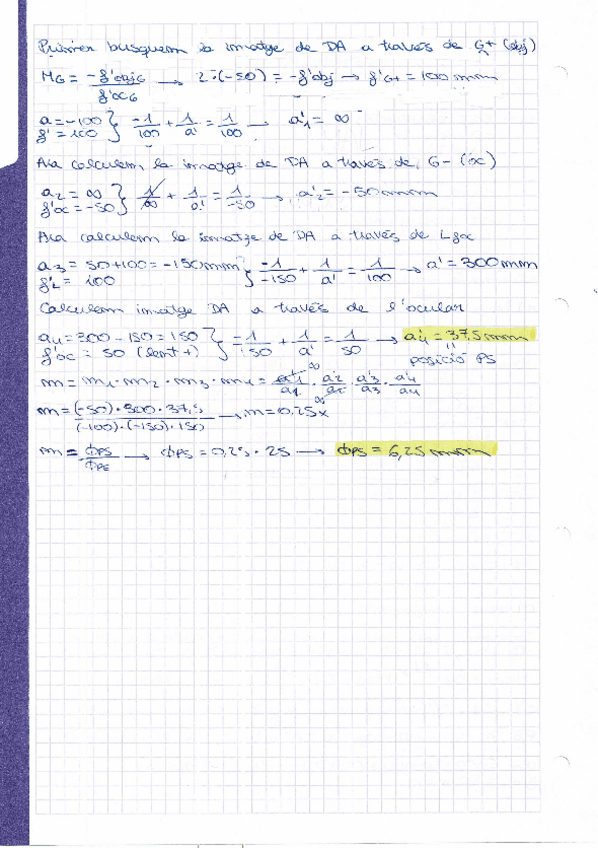 Primer busquem la imatge de DA a través de G+ (obj)
MG = -f'objG / f'ocG → 2·(-50) = -f'obj → f'G+ = 100 mm
a = -100 f' = 100 } -1/100 + 1/a' = 1/100 → a'1 = ∞
Ara calculem la imatge de DA a través de G- (oc)
a2 = ∞ f'oc = -50 } 1/∞ + 1/a' = 1/-50 → a'2 = -50mm
Ara calculem la imatge de DA a través de
a3 = 50+100 = -150mm f'L = 100 } -1/-150 + 1/a' = 1/100 → a' = 300mm
Calculem imatge DA a través de l'ocular
a4 = 300 - 150 = 150 f'oc = 50 (lent +) } -1/150 + 1/a' = 1/50 → a'4 = 37,5 mm
posició PS
m = m1 · m2 · m3 · m4 = a'1/a1 · a'2/a2 · a'3/a3 · a'4/a4
m = (-50)·300·37,5 / (-100)·(-150)·150 → m = 0,25x
m = ΦPS/ΦPE → ΦPS = 0,25 · 25 → ΦPS = 6,25 mm